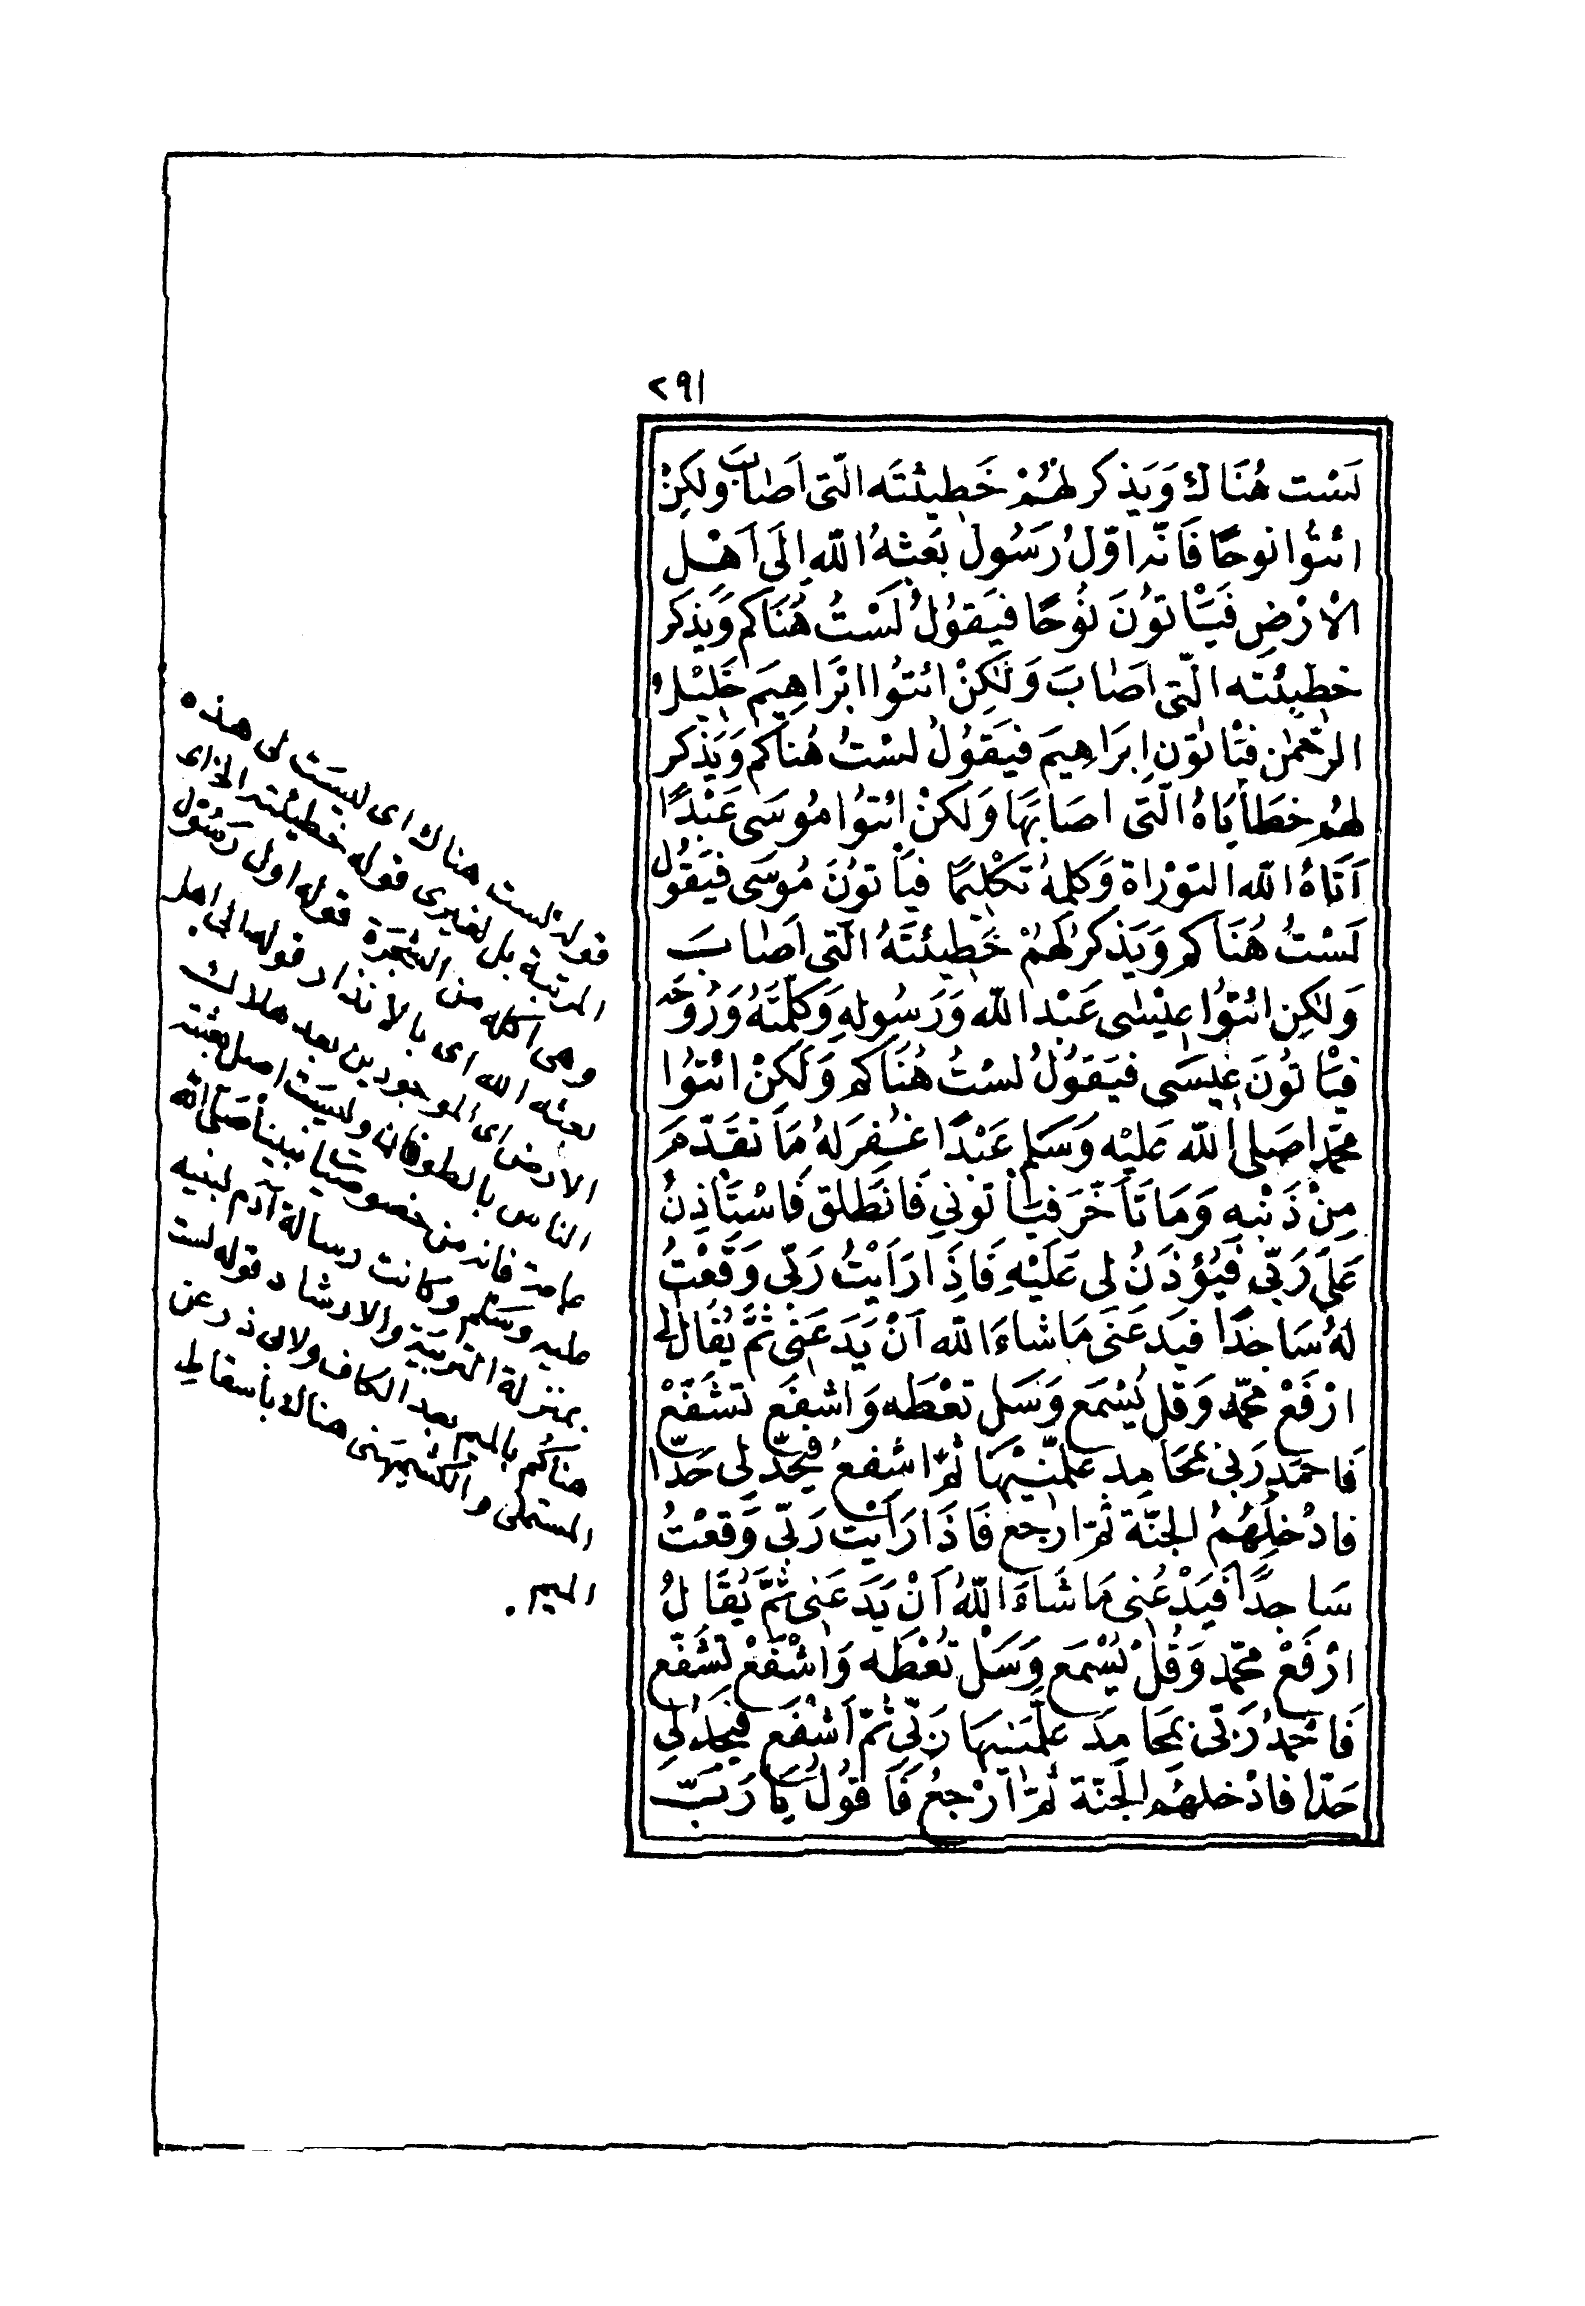 ٢٩١
لَسْت هُنَاكَ وَيَذكر لهُمْ خَطِيئتَه الّتى اَصَابَ ولكِنْ
ائتوُا نوحًا فَانّه اوّلُ رَسُول بَعَثهُ اللهِ اِلَى اَهْل
الارْضِ فَيَأتوُنَ نوُحًا فيَقوُلُ لَسْتُ هُنَاكم وَيَذكَر
خطيئته الّتى اصَابَ وَلٰكِنْ ائتوُا ابْرَاهِيمَ خَلِيْلَ
الرحْمٰن فيَأتوُن اِبرَاهِيمَ فيَقوُلُ لسْتُ هُناكم وَيَذكر
لهُم خِطَايَاهُ الّتى اصَابَهَا وَلكنْ ائتوُا مُوسَى عَبْدًا
آتَاهُ الله التوْرَاة وَكلمهُ تكْليمًا فيَأتوُنَ مُوسَى فيَقوُل
لَسْتُ هُنَاكم وَيَذكرُ لهَمْ خَطِيئتَهُ الّتى اَصَابَ
وَلٰكِن ائتوُا عِيْسٰى عَبْد الله وَرَسُولهِ وَكلمَتَهُ وَرُوحَه
فيَأتوُنَ عِيسَى فيَقوُلُ لسْتُ هُنَاكم وَلَكنْ ائتوُا
محمّدا صَلى الله عَليْه وَسَلم عَبْدًا غفِرَ لهُ مَا تقَدّمَ
مِنْ ذَنْبهِ وَمَا تَأخّرَ فيَأتوُنى فَانطَلق فَاسْتَأذِنُ
عَلَى رَبّى فَيُؤذَنُ لى عَلَيْهِ فَاِذَا رَاَيْتُ رَبّى وَقعْتُ
لهُ سَاجدًا فيَدعَنى مَا شاءَ الله اَنْ يَدَعَنى ثمّ يُقَال لى
ارْفَعْ محمّد وَقل يُسْمَع وَسَل تعْطَه وَاشفَع تشَفّعْ
فَاحمَد رَبى بمحَامِد علمَنِيْهَا ثمّ اشفعُ فيَحدّ لى حَدّا
فادْخلهُمُ الجنّة ثمّ ارجع فَاذَا رَاَيْت رَبّى وَقعْتُ
سَاجدًا فَيَدْعُنى مَا شَاءَ اللهُ اَنْ يَدَعَنى ثمّ يُقَالُ
ارْفَعْ محمّد وَقُلْ يُسْمَع وَسَلْ تعْطَه وَاشْفَعْ تُشَفّع
فَاحْمَدُ رَبّى بمحَامِدَ علّمَنيهَا رَبّى ثمّ اَشْفَع فيَحدُ لى
حَدّا فادْخلهُم الجَنّة ثمّ ارْجعُ فَاَقوُلُ يَا رَبّ
قوله لست هناك اى ليسَت لى هذه
المرتبة بل لغيرى قوله خطيئته الخ اى
وهى اكله من الشجَرَة قوله اول رَسُول
بعثه الله اى بالانذار قوله الى اهل
الارض اى الموجودين بعد هلاك
الناس بالطوفان وليسَت اصل بعثته
عامة فانه من خصوصيات نبينا صَلى الله
عليه وسَلم وكانت رسالة آدم لبنيه
بمنزلة التربيَة والارشاد قوله لست
هناكُم بالميم بعد الكاف ولابى ذر عن
المستملى والكشميهَنى هناك باسقاط
الميم .